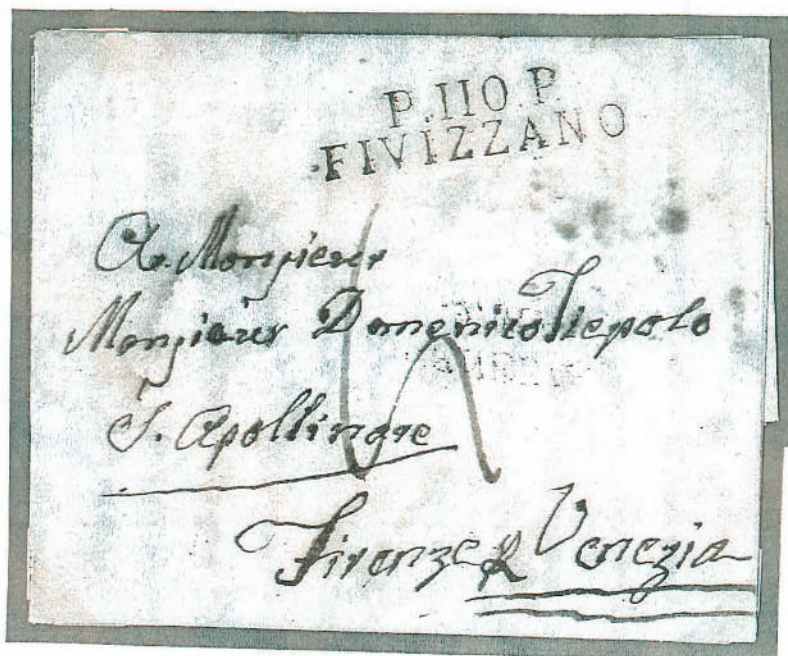 P.110.P.
FIVIZZANO
A Monsieur
Monsieur Domenico Tiepolo
S. Apollinare
Firenze p Venezia